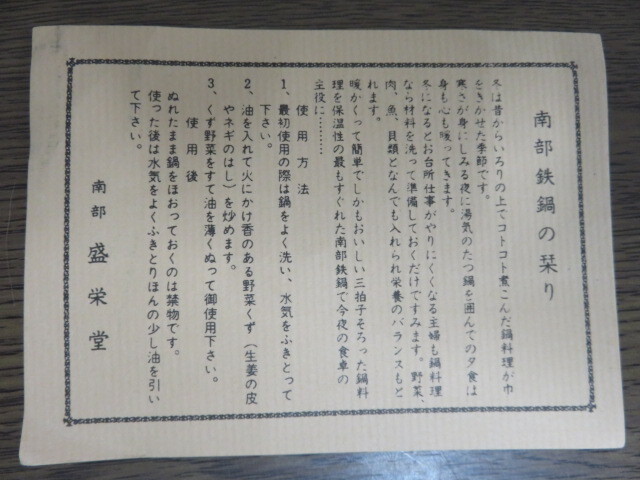 南部鉄鍋の栞り
冬は昔からいろりの上でコトコト煮こんだ鍋料理が巾
をきかせた季節です。
寒さが身にしみる夜に湯気のたつ鍋を囲んでの夕食は
身も心も暖ってきます。
冬になるとお台所仕事がやりにくくなる主婦も鍋料理
なら材料を洗って準備しておくだけですみます。野菜、
肉、魚、貝類となんでも入れられ栄養のバランスもと
れます。
暖かくって簡単でしかもおいしい三拍子そろった鍋料
理を保温性の最もすぐれた南部鉄鍋で今夜の食卓の
主役に…………
使用方法
1、最初使用の際は鍋をよく洗い、水気をふきとって
下さい。
2、油を入れて火にかけ香のある野菜くず（生姜の皮
やネギのはし）を炒めます。
3、くず野菜をすて油を薄くぬって御使用下さい。
使用後
ぬれたまま鍋をほおっておくのは禁物です。
使った後は水気をよくふきとりほんの少し油を引い
て下さい。
南部 盛栄堂